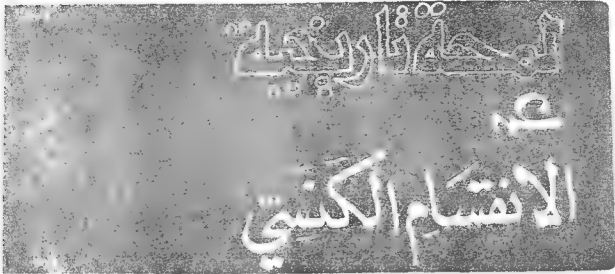 لمحة تاريخية
عن
الانقسام الكنسي